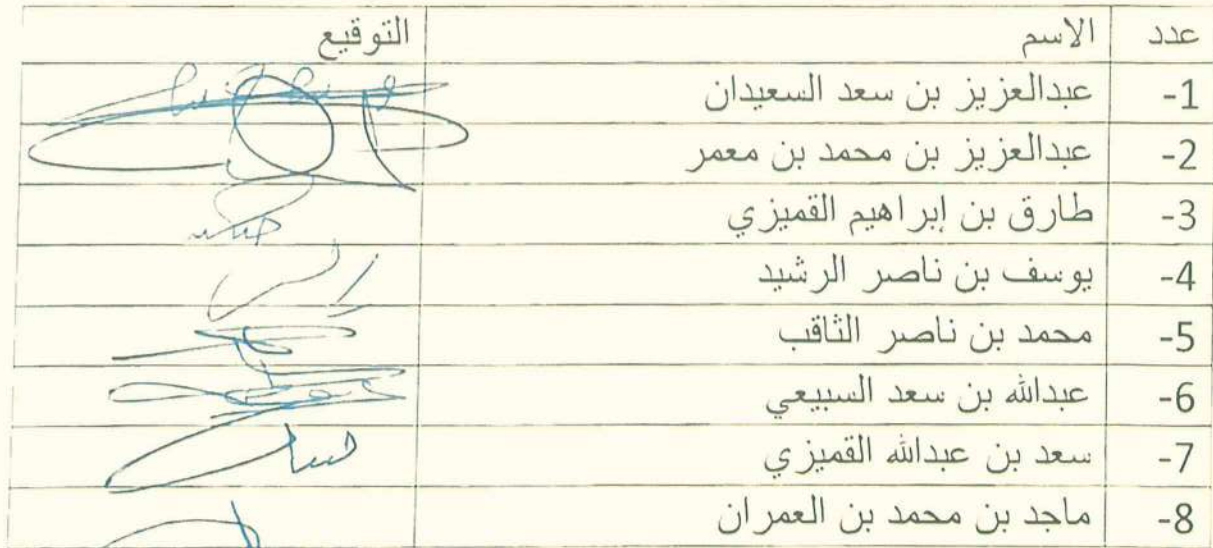 عدد الاسم التوقيع
-1 عبدالعزيز بن سعد السعيدان
-2 عبدالعزيز بن محمد بن معمر
-3 طارق بن إبراهيم القميزي
-4 يوسف بن ناصر الرشيد
-5 محمد بن ناصر الثاقب
-6 عبدالله بن سعد السبيعي
-7 سعد بن عبدالله القميزي
-8 ماجد بن محمد بن العمران